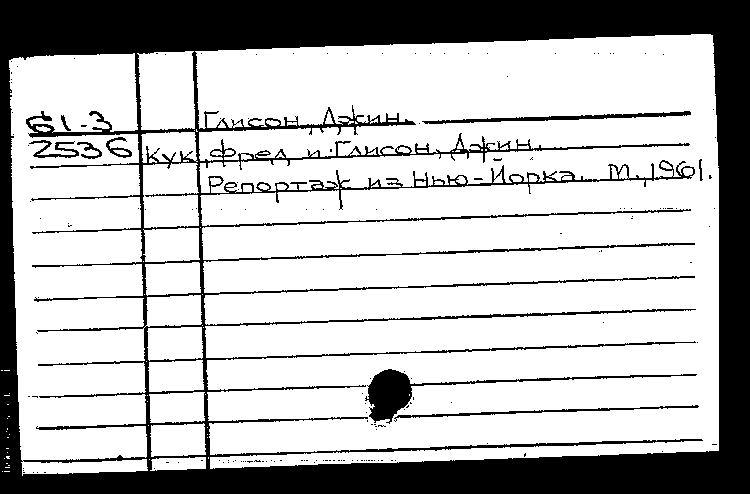 61-3 Глисон, Джин.
2536 Кук, Фред и Глисон, Джин.
Репортаж из Нью-Йорка. М., 1961.